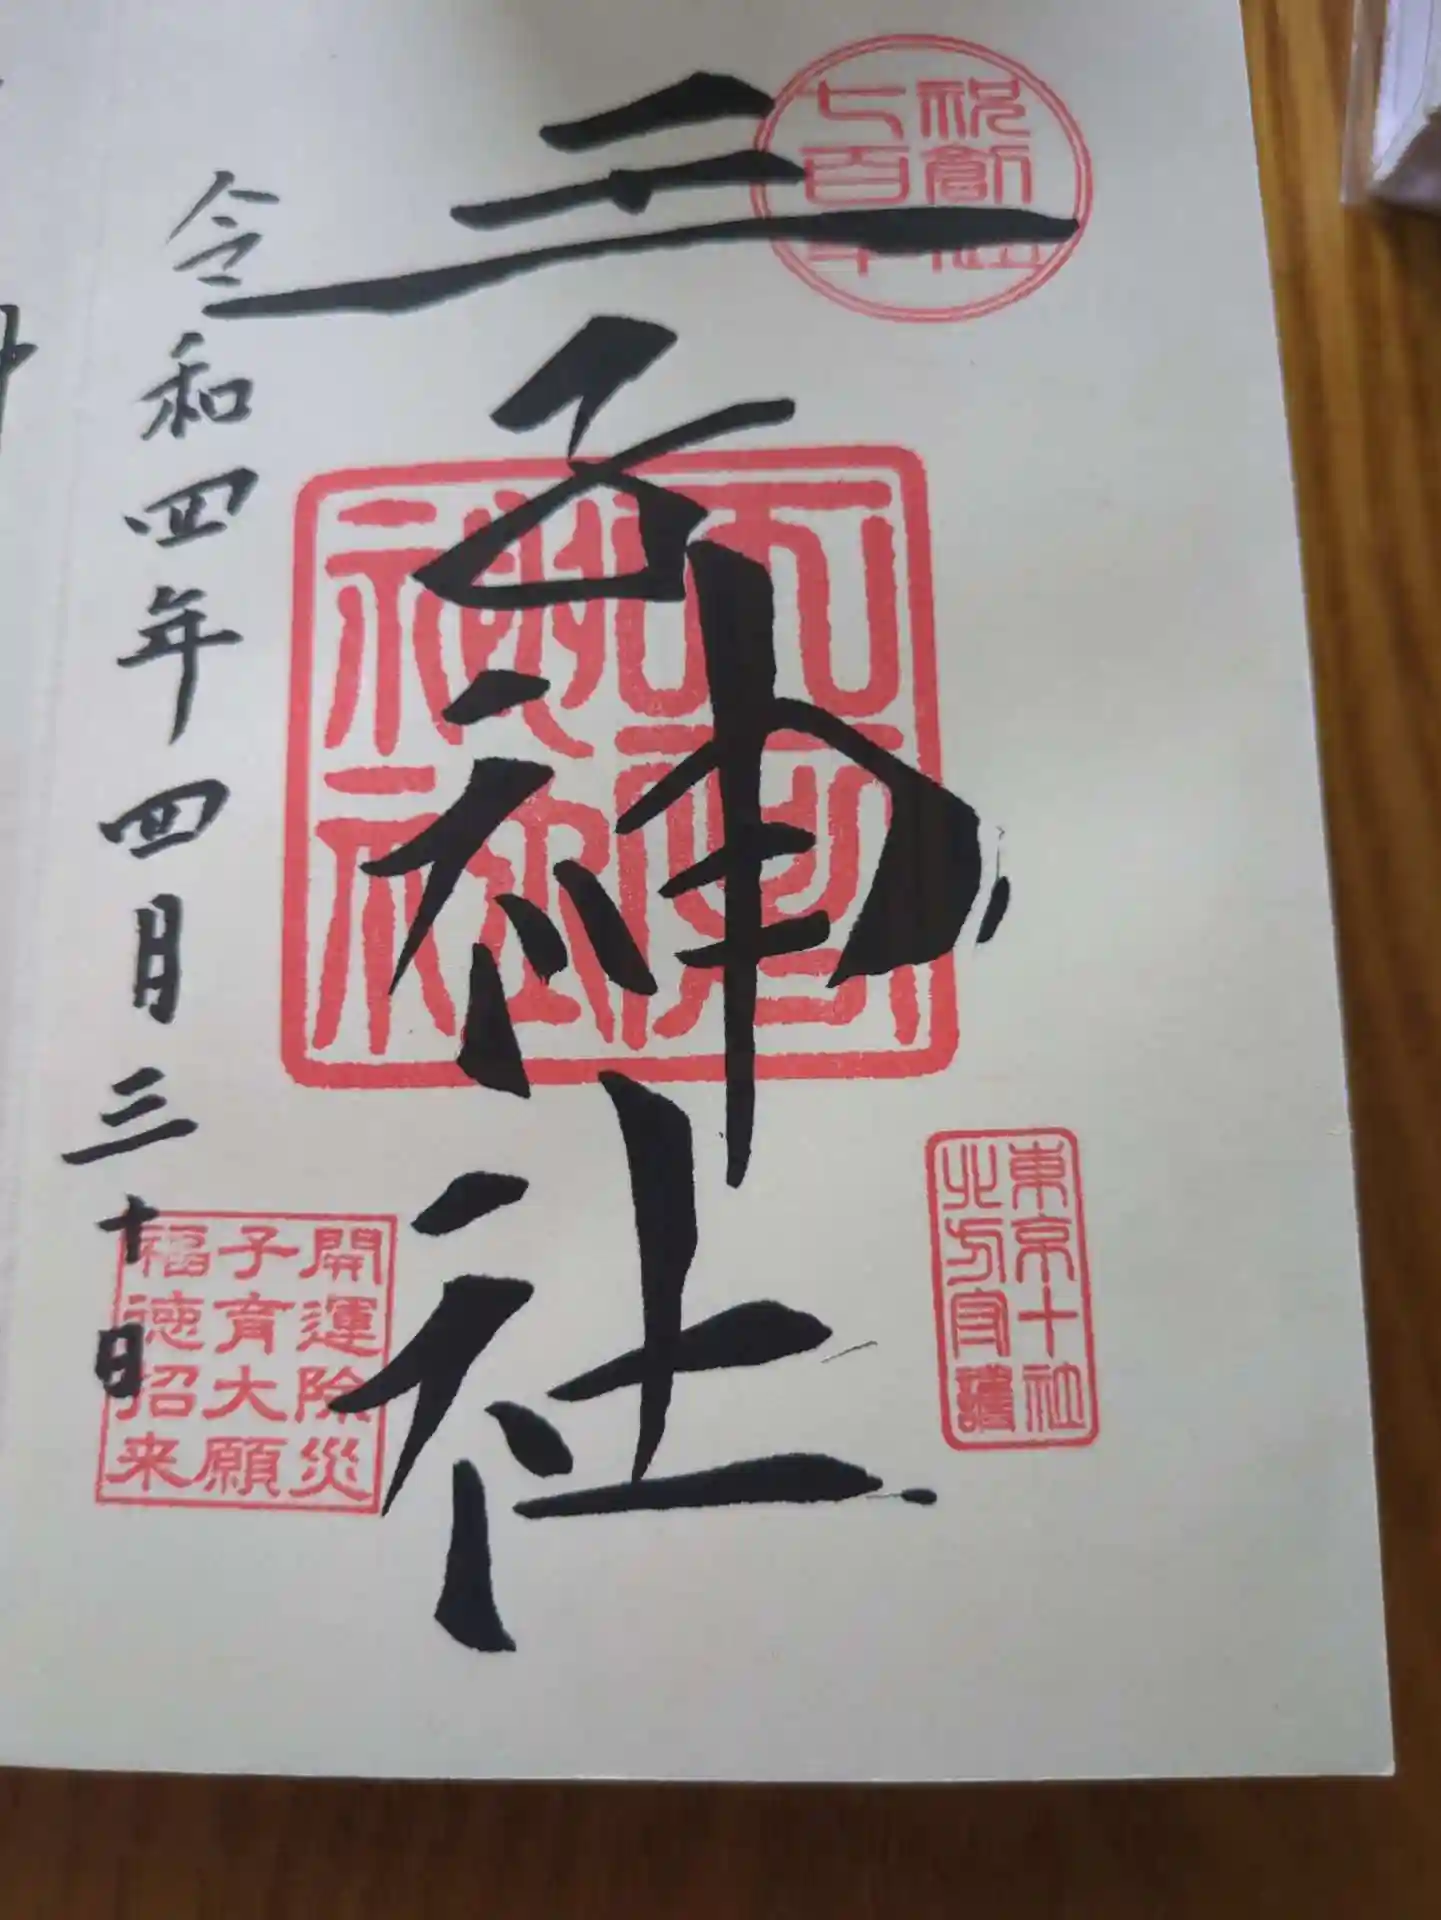 祝創社
七百年
東京十社
北方守護
王子神社
令和四年四月三十日
開運除災
子育大願
福徳招来